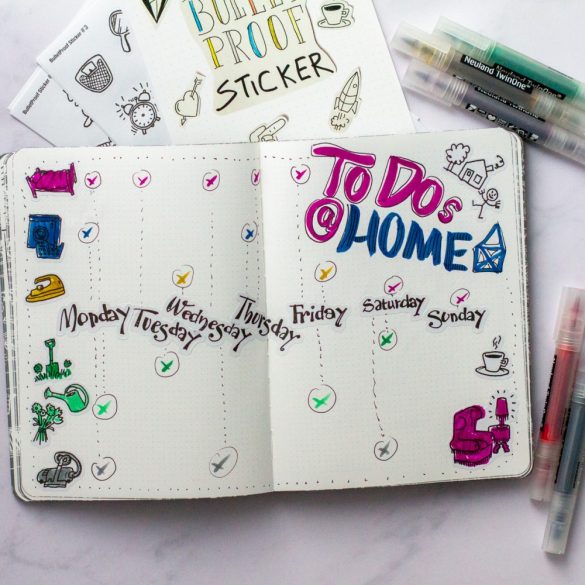 BulletProof Sticker # 3
BulletProof Sticker #
BULLET
PROOF
STICKER
Neuland TwinOne
Neuland TwinOne
TO DOs
@HOME
Monday
Tuesday
Wednesday
Thursday
Friday
Saturday
Sunday